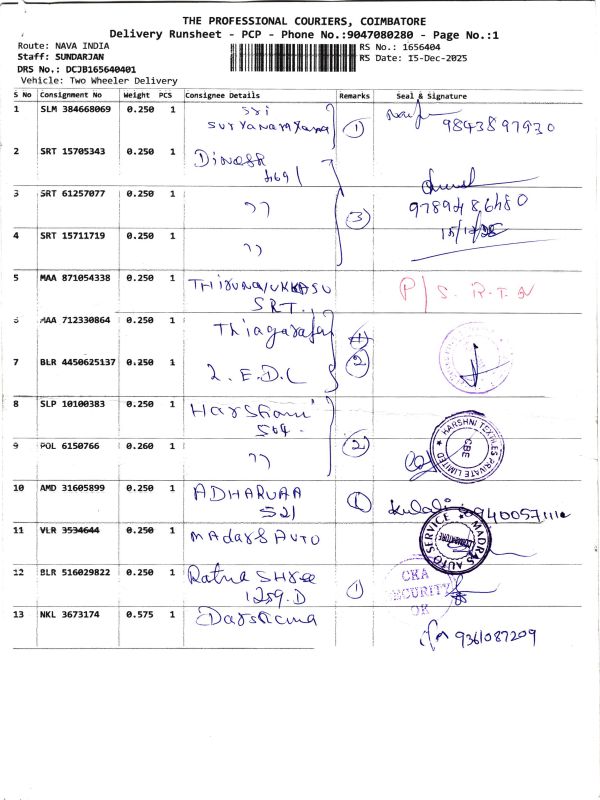 THE PROFESSIONAL COURIERS, COIMBATORE
Delivery Runsheet - PCP - Phone No.:9047080280 - Page No.:1
Route: NAVA INDIA
Staff: SUNDARJAN
DRS No.: DCJB165640401
Vehicle: Two Wheeler Delivery
RS No.: 1656404
RS Date: 15-Dec-2025
S No Consignment No Weight PCS Consignee Details Remarks Seal & Signature
1 SLM 384668069 0.250 1 Sri
Suryanarayana 1 9843897930
2 SRT 15705343 0.250 1 Dinesh
4691
3 SRT 61257077 0.250 1 ״ 3 9789486480
15/12/25
4 SRT 15711719 0.250 1 ״
5 MAA 871054338 0.250 1 THIRUNAVUKKASU P/S.R.T.N
SRT.
6 MAA 712330864 0.250 1 Thiagaraja
7 BLR 4450625137 0.250 1 L.E.D.C 2
8 SLP 10100383 0.250 1 Harshani
504.
HARSHNI TEXTILES PRIVATE LIMITED
CBE
9 POL 6150766 0.260 1 ״ 2
10 AMD 31605899 0.250 1 ADHARVAA 1
521
11 VLR 3534644 0.250 1 Madars AUTO
MADRAS AUTO SERVICE
COIMBATORE
12 BLR 516029822 0.250 1 Ratna SHree 1
1259.D
CKA
SECURITY
OK
13 NKL 3673174 0.575 1 Darshana
9361087209